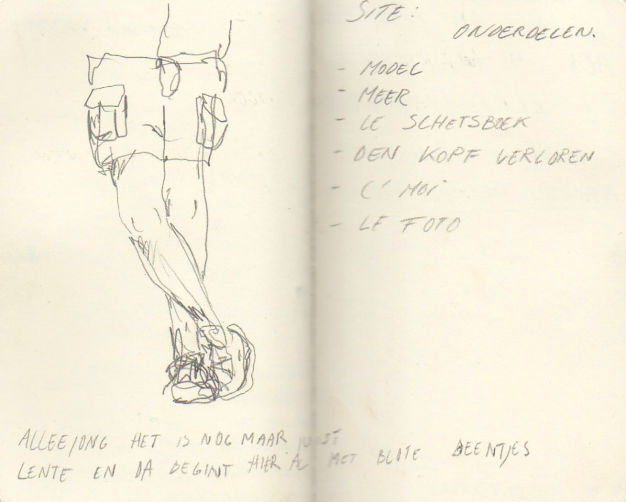 SITE:
ONDERDELEN.
- MODEL
- MEER
- LE SCHETSBOEK
- DEN KOPF VERLOREN
- C' MOI
- LE FOTO
ALLEEJONG HET IS NOG MAAR JUIST
LENTE EN DA BEGINT HIER AL MET BLOTE BEENTJES